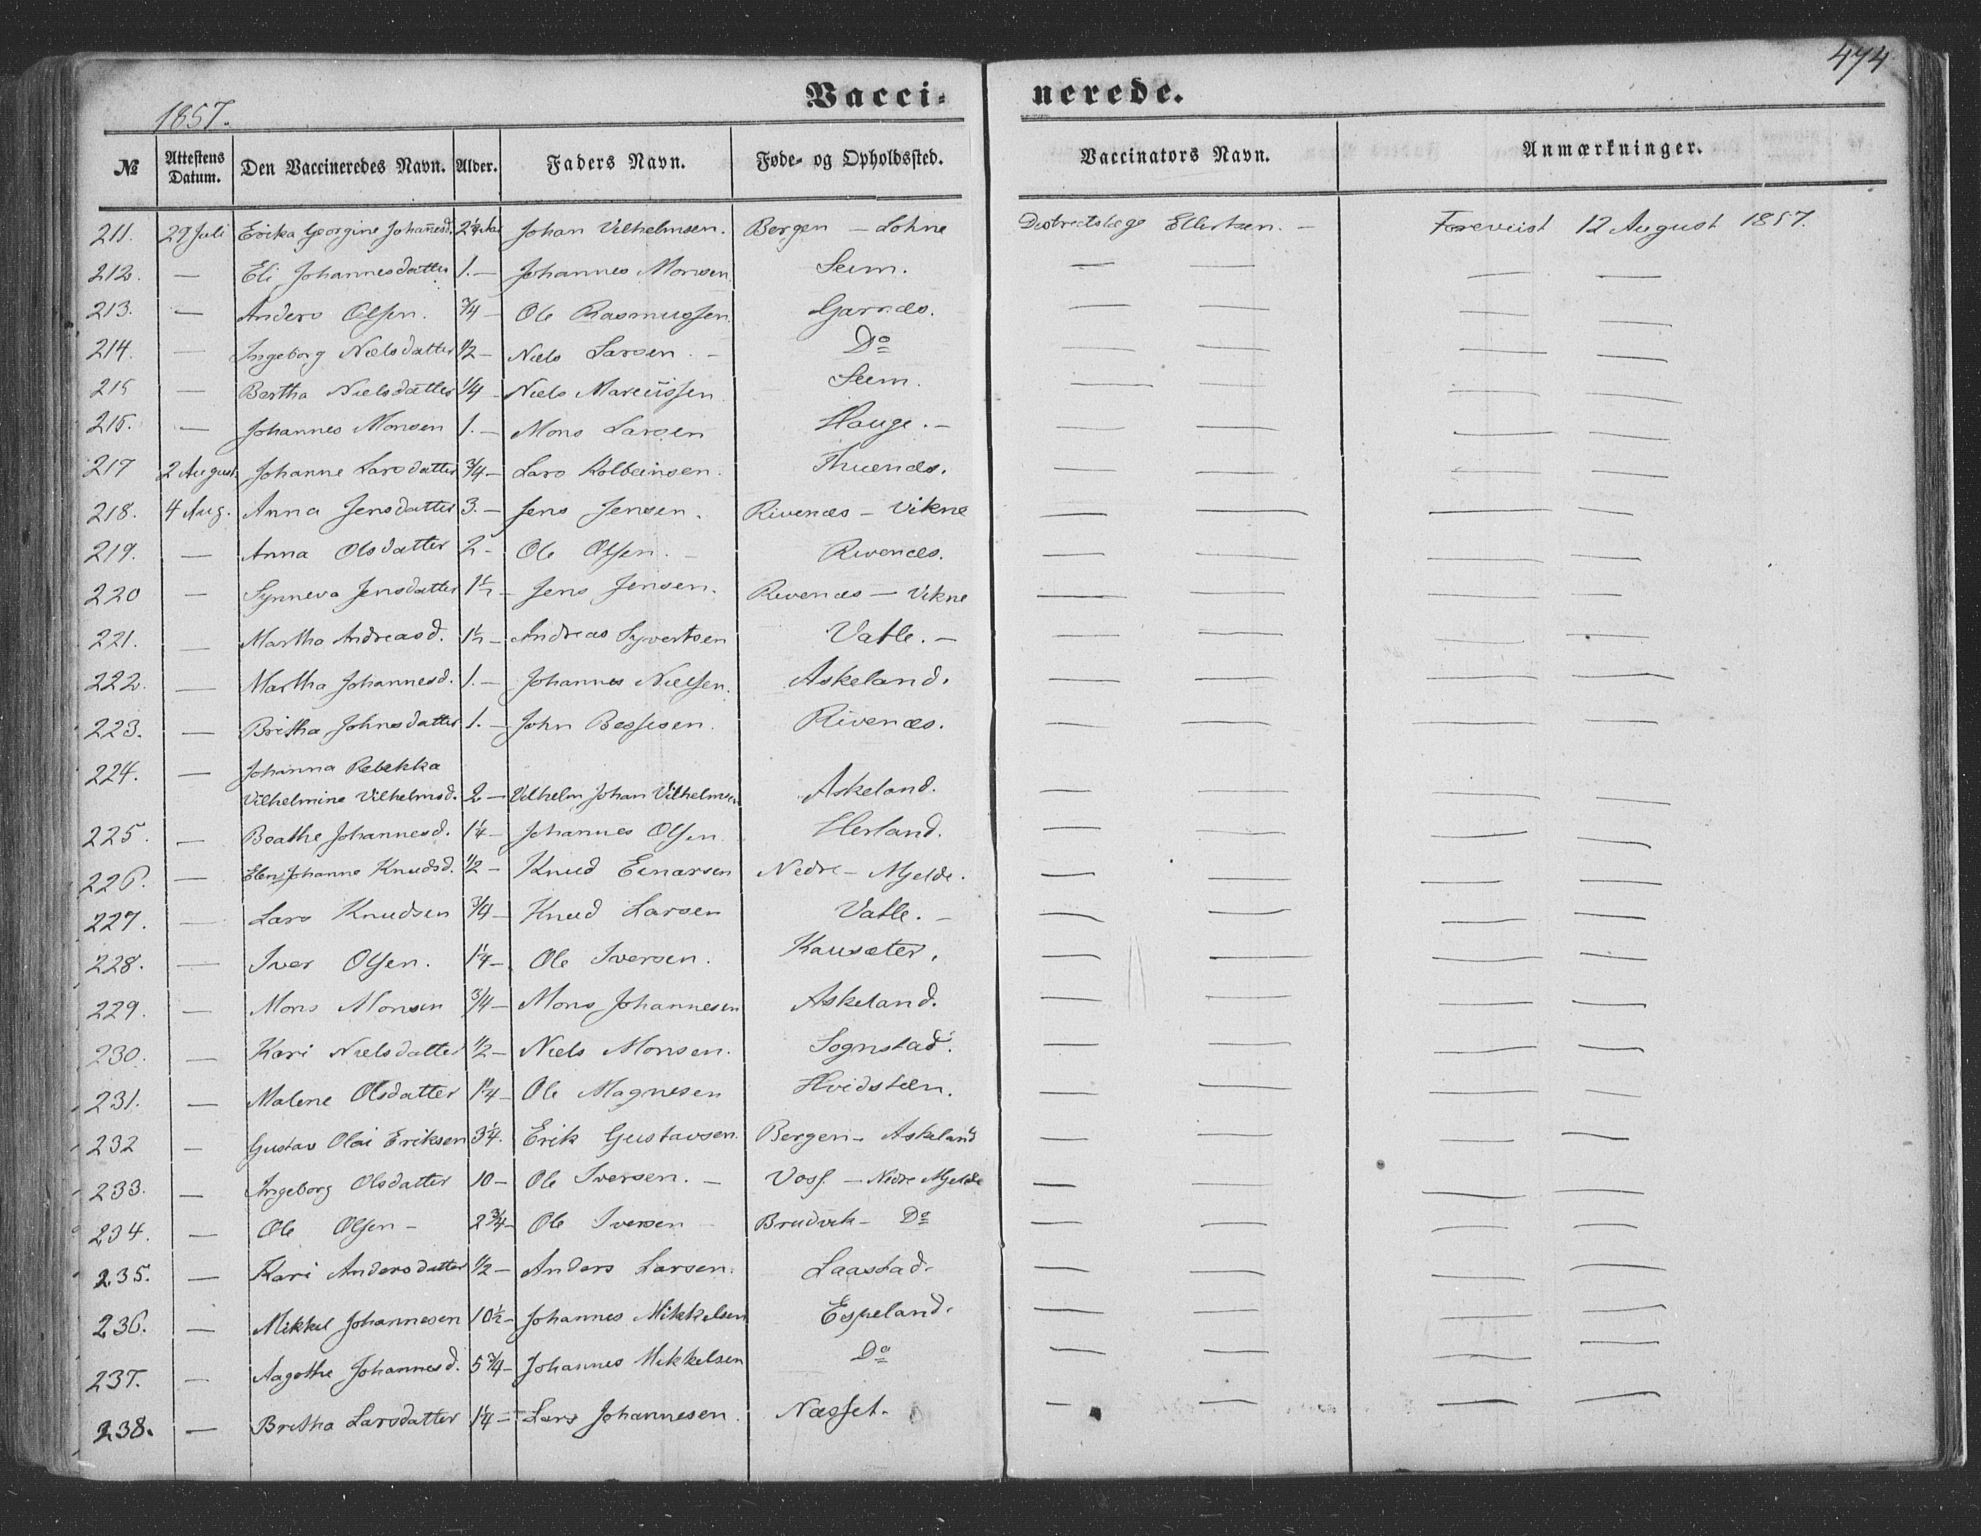 474
1857.
Vacci- nerede.
№ Attestens Datum. Den Vaccineredes Navn. Alder. Faders Navn. Føde- og Opholdssted. Vaccinators Navn. Anmærkninger.
211. 29 Juli Erika Georgine Johañesd. 2¼ Johan Vilhelmsen. Bergen – Lohne Distrectslæge Ellertsen. – Foreviist 12 August 1857.
212. — Eli Johannesdatter 1. — Johannes Monsen Seim. — — — —
213. — Anders Olsen. ¾ – Ole Rasmussen. Garnæs. — — — —
214. — Ingeborg Nielsdatter ½ – Niels Larsen. – Do — — — —
215 — Bertha Nielsdatter ¼ – Niels Marcussen Seim. — — — —
216. — Johannes Monsen 1. – Mons Larsen Hauge. – — — — —
217 2 August Johanne Larsdatter ¾ – Lars Kolbeinsen. Thuenæs. — — — —
218. 4 Aug. Anna Jensdatter 3. – Jens Jensen. Rivenæs – Vikne — — — —
219. — Anna Olsdatter 2 – Ole Olsen. – Rivenæs. — — — —
220 — Synneva Jensdatter 1½ – Jens Jensen. Rivenæs – Vikne — — — —
221. — Martha Andreasd. 1½ – Andreas Syvertsen Vatle. – — — — —
222. — Martha Johannesd. 1. – Johannes Nielsen. Askeland. — — — —
223. — Britha Johnsdatter 1. – John Bessesen. Rivenæs. — — — —
224. — Johanna Rebekka
Vilhelmine Vilhelmsd. 2 – Vilhelm Johan Vilhelmsen Askeland. — — — —
225. — Beathe Johannesd. 1¼ – Johannes Olsen. Herland. — — — —
226. — Elen Johanne Knudsd. ½ – Knud Einarsen Nedre – Mjelde. — — — —
227. — Lars Knudsen ¾ – Knud Larsen Vatle. – — — — —
228. — Iver Olsen. 1¼ – Ole Iversen. Kausæter. — — — —
229. — Mons Monsen ¾ – Mons Johannesen Askeland. — — — —
230. — Kari Nielsdatter ½ – Niels Monsen. Sognstad. — — — —
231. — Malene Olsdatter 1¼ – Ole Magnesen Hvidsteen. — — — —
232 — Gustav Olai Eriksen 3¼. Erik Gustavsen. Bergen – Askeland — — — —
233. — Ingeborg Olsdatter 10 – Ole Iversen. – Voss – Nedre Mjelde — — — —
234. — Ole Olsen – 2¾ – Ole Iversen – Brudvik – Do — — — —
235. — Kari Andersdatter ½ – Anders Larsen. Laastad. — — — —
236. — Mikkel Johannesen 10½ – Johannes Mikkelsen Espeland. — — — —
237. — Aagothe Johannesd. 5¾ – Johannes Mikkelsen Do — — — —
238. — Britha Larsdatter 1¼ – Lars Johannesen. Næsset. — — — —